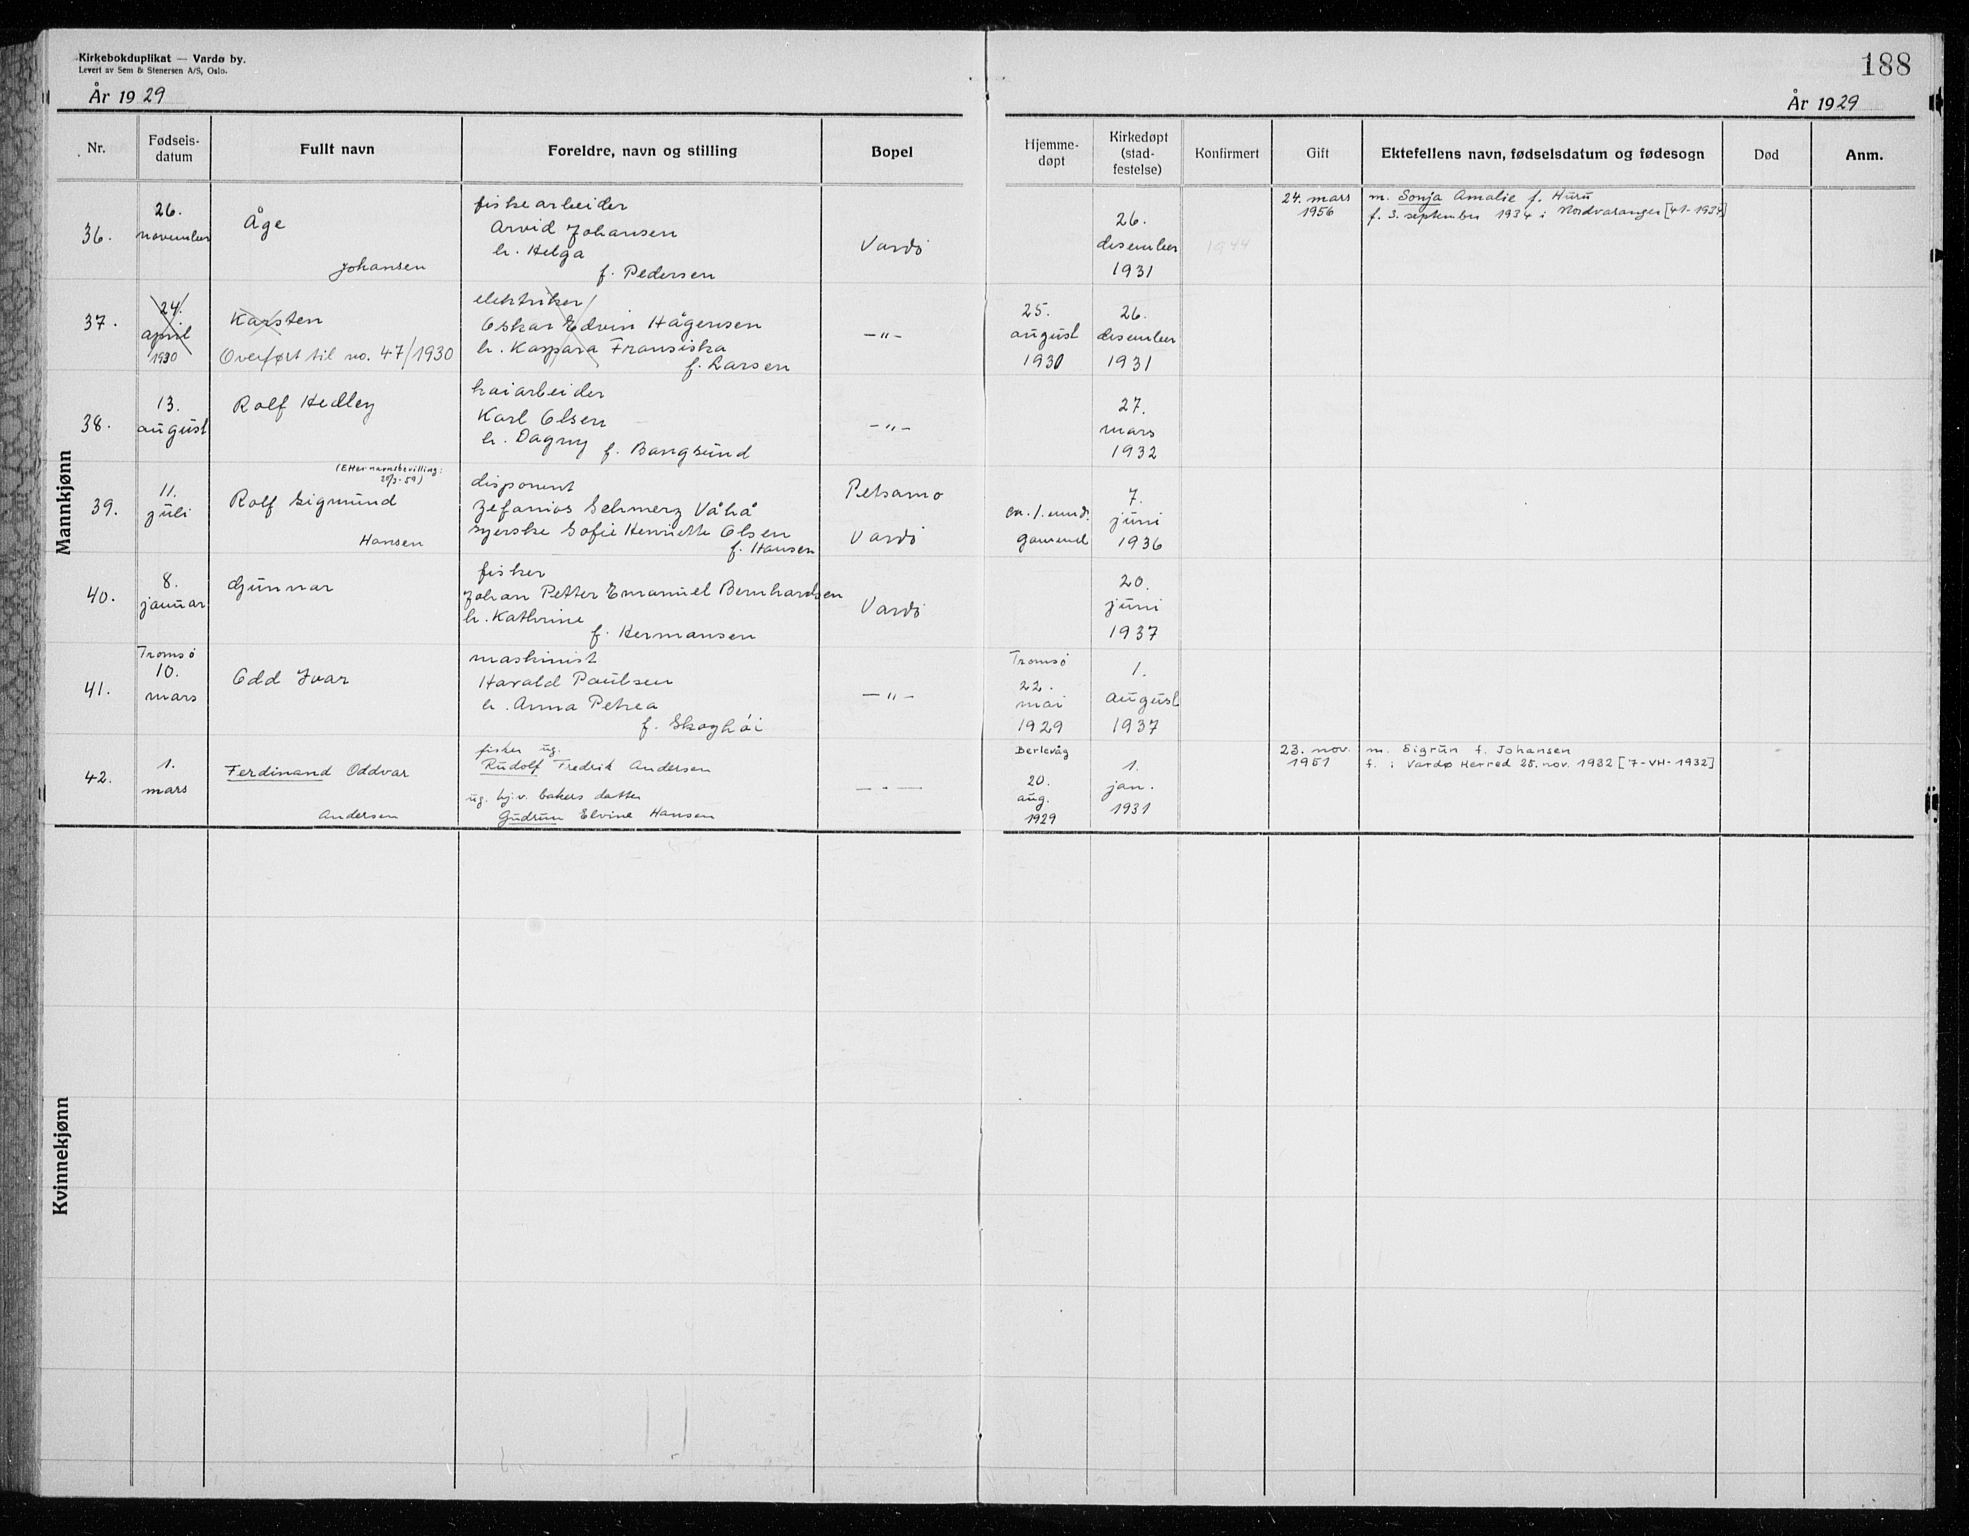 Kirkebokduplikat — Vardø by.
Levert av Sem & Stenersen A/S, Oslo.
188
År 1929
År 1929
Nr. Fødselsdatum Fullt navn Foreldre, navn og stilling Bopel Hjemmedøpt Kirkedøpt (stadfestelse) Konfirmert Gift Ektefellens navn, fødselsdatum og fødesogn Død Anm.
Mannkjønn
36.
26.
november
Åge
Johansen
fiskearbeider
Arvid Johansen
h. Helga
f. Pedersen
Vardö
26.
desember
1931
1944
24. mars
1956
m. Sonja Amalie f. Huru
f. 3. september 1934 i Nordvaranger [41-1934]
37.
24.
april
1930
Karsten
Overført til no. 47/1930
elektriker
Oskar Edvin Hågensen
h. Kaspara Fransiska
f. Larsen
—"—
25.
august
1930
26.
desember
1931
38.
13.
august
Rolf Hedley
kaiarbeider
Karl Olsen
h. Dagny
f. Bangsund
—"—
27.
mars
1932
39.
11.
juli
(Efter navnebevilling:
20/3-59)
Rolf Sigmund
Hansen
disponent
Zefanias Schmerz Våhå
syerske Sofie Henriette Olsen
f. Hansen
Petsamo
Vardö
gomend
7.
juni
1936
40.
8.
januar
Gunnar
fisker
Johan Petter Emanuel Bernhardsen
h. Kathrine
f. Hermansen
Vardö
20.
juni
1937
41.
Tromsö
10.
mars
Odd Ivar
maskinist
Harald Paulsen
h. Anna Petrea
f. Skoghöi
—"—
Tromsö
22.
mai
1929
1.
august
1937
42.
1.
mars
Ferdinand Oddvar
Andersen
fisker ug.
Rudolf Fredrik Andersen
ug. hj.v. bakers datter
Gudrun Elvine Hansen
—"—
Berlevåg
20.
aug.
1929
1.
jan.
1931
23. nov.
1951
m. Sigrun f. Johansen
f. i Vardø Herred 25. nov. 1932 [7-VH-1932]
Kvinnekjønn